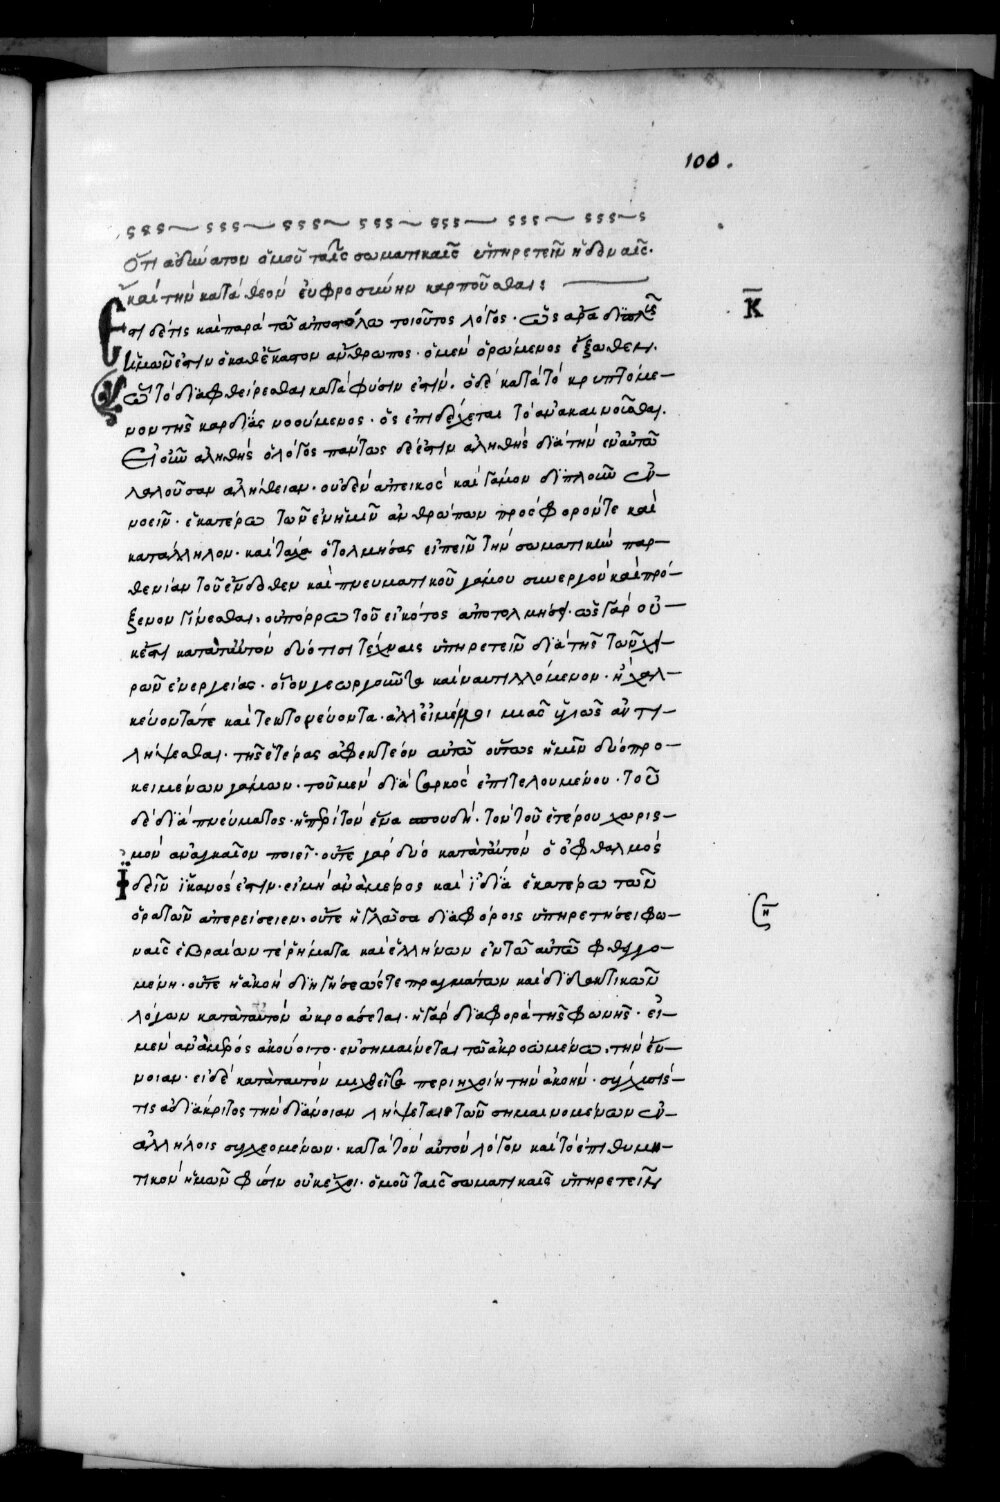 100.
Ὅτι ἀδύνατον ὁμοῦ ταῖς σωματικαῖς ὑπηρετεῖν ἡδοναῖς·
καὶ τὴν κατὰ θεὸν εὐφροσύνην καρποῦσθαι:
Κ
Ἔστι δέ τις καὶ παρὰ τῶ ἀποστόλω τοιοῦτος λόγος· ὡς ἄρα διπλοῦς
ἡμῶν ἐστιν ὁ καθέκαστον ἄνθρωπος· ὁ μὲν ὁρώμενος ἔξωθεν·
ὧ τὸ διαφθείρεσθαι κατὰ φύσιν ἐστίν· ὁ δὲ κατὰ τὸ κρυπτόμε-
νον τῆς καρδίας νοούμενος· ὃς ἐπιδέχεται τὸ ἀνακαινοῦσθαι.
Εἰ οὖν ἀληθὴς ὁ λόγος πάντως δέ ἐστιν ἀληθὴς διὰ τὴν ἐν αὐτῶ
λαλοῦσαν ἀλήθειαν· οὐδὲν ἀπεικὸς καὶ γάμον διπλοῦν ἐν-
νοεῖν· ἑκατέρω τῶν ἐν ἡμῖν ἀνθρώπων πρόσφορόν τε καὶ
κατάλληλον· καὶ τάχα ὁ τολμήσας εἰπεῖν τὴν σωματικὴν παρ-
θενίαν τοῦ ἔνδοθεν καὶ πνευματικοῦ γάμου συνεργὸν καὶ πρό-
ξενον γίνεσθαι· οὐ πόρρω τοῦ εἰκότος ἀποτολμήσει· ὡς γὰρ οὐ-
κ ἔστι κατὰ ταυτὸν δύο τισὶ τέχναις ὑπηρετεῖν διὰ τῆς τῶν χει-
ρῶν ἐνεργείας· οἷον γεωργοῦντα καὶ ναυτιλλόμενον· ἢ χαλ-
κεύοντά τε καὶ τεκτονεύοντα· ἀλλ' εἰ μέλλοι μιᾶς ὑγιῶς ἀντι-
λήψεσθαι· τῆς ἑτέρας ἀφεκτέον αὐτῶ οὕτως ἡμῖν δύο προ-
κειμένων γάμων· τοῦ μὲν διὰ σαρκὸς ἐπιτελουμένου· τοῦ
δὲ διὰ πνεύματος· ἡ περὶ τὸν ἕνα σπουδὴ· τὸν τοῦ ἑτέρου χωρισ-
μὸν ἀναγκαῖον ποιεῖ· οὔτε γὰρ δύο κατὰ ταυτὸν ὁ ὀφθαλμὸς
ἰδεῖν ἱκανός ἐστιν· εἰ μὴ ἀνὰ μέρος καὶ ἰδία ἑκατέρω τῶν
ὁρατῶν ἀπερείσειεν· οὔτε ἡ γλῶσσα διαφόροις ὑπηρετήσει φω-
ναῖς ἑβραίων τε ῥήματα καὶ ἑλλήνων ἐν τῶ αὐτῶ φθεγγο-
μένη· οὔτε ἡ ἀκοὴ διηγήσεώς τε πραγμάτων καὶ διδακτικῶν
λόγων κατὰ ταυτὸν ἀκροάσεται· ἡ γὰρ διαφορὰ τῆς φωνῆς· εἰ-
μὲν ἀνὰ μέρος ἀκούοιτο· ἐνσημαίνεται τῶ ἀκροωμένω· τὴν ἔν-
νοιαν· εἰ δὲ κατὰ ταυτὸν μιχθεῖσα περιηχοίη τὴν ἀκοὴν· σύγχυσίς
τις ἀδιάκριτος τὴν διάνοιαν λήψεται τῶν σημαινομένων ἐν-
ἀλλήλοις συγχεομένων· κατὰ τὸν αὐτὸν λόγον καὶ τὸ ἐπιθυμη-
τικὸν ἡμῶν φύσιν οὐκ ἔχει· ὁμοῦ ταῖς σωματικαῖς ὑπηρετεῖν